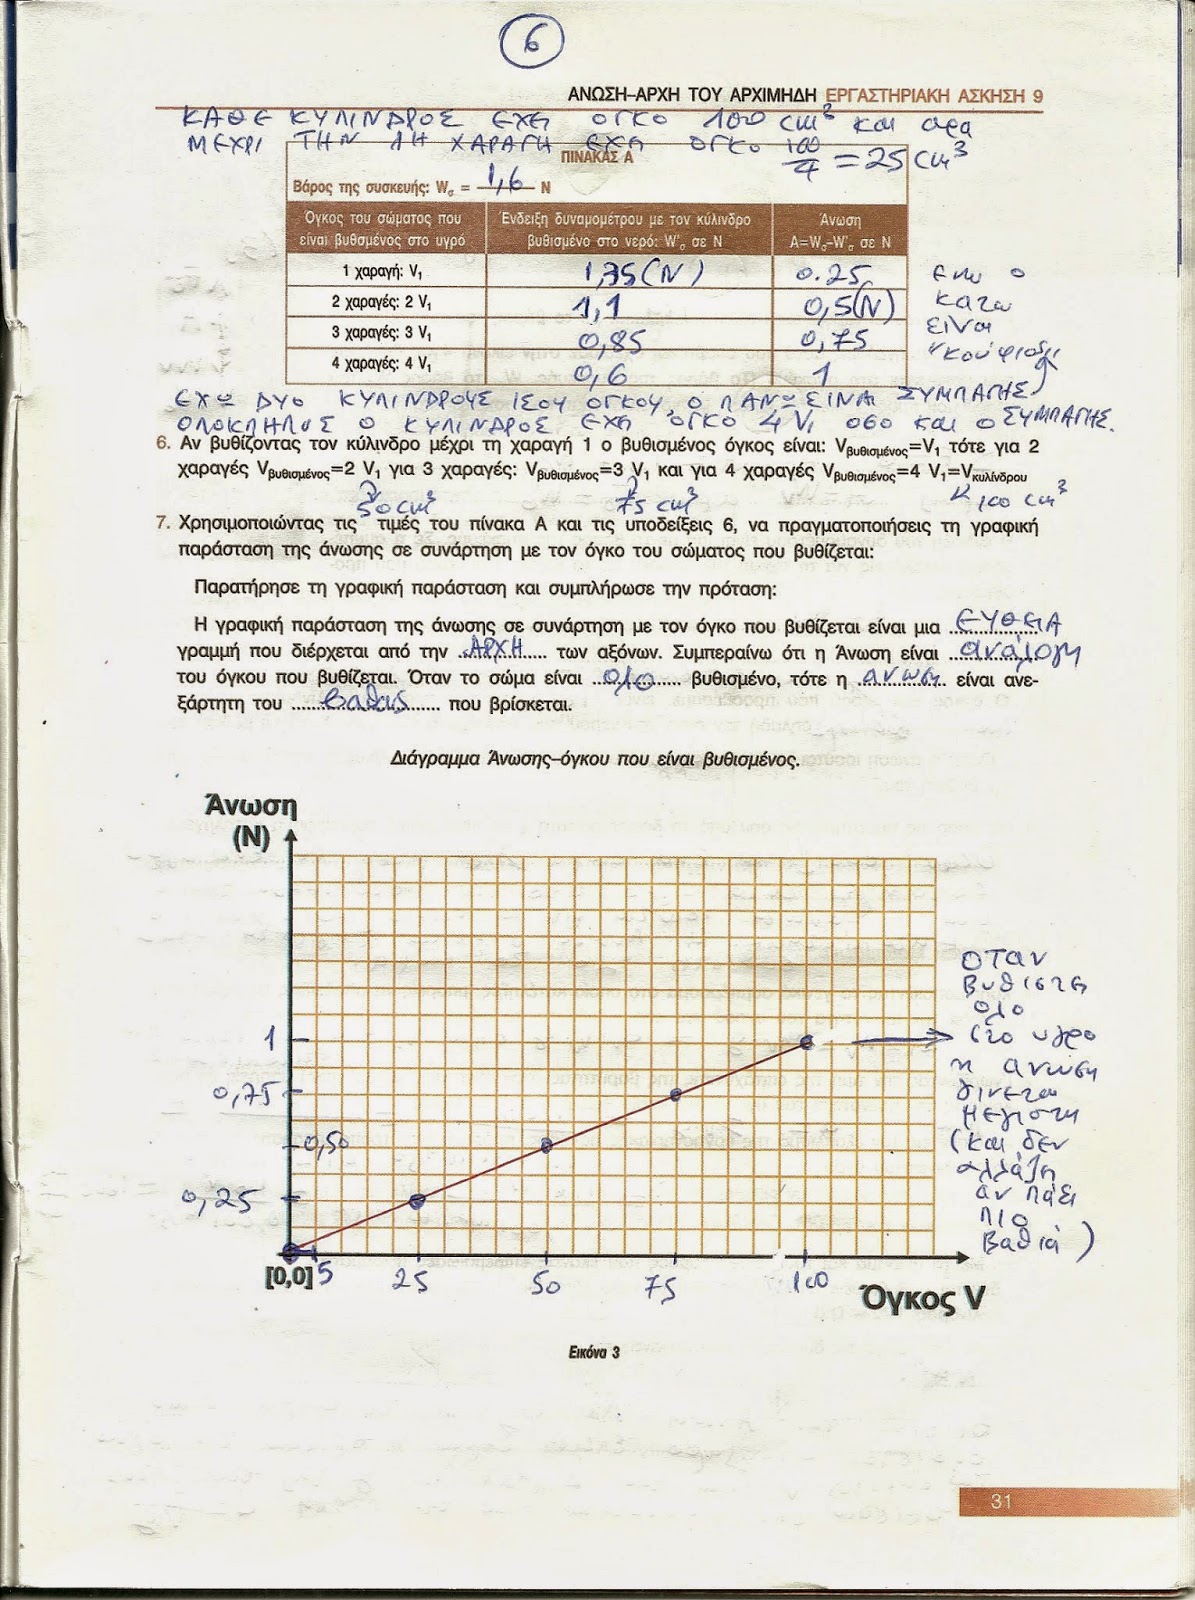 6
ΑΝΩΣΗ–ΑΡΧΗ ΤΟΥ ΑΡΧΙΜΗΔΗ ΕΡΓΑΣΤΗΡΙΑΚΗ ΑΣΚΗΣΗ 9
ΚΑΘΕ ΚΥΛΙΝΔΡΟΣ ΕΧΕΙ ΟΓΚΟ 100 cm³ και αρα
ΜΕΧΡΙ ΤΗΝ 1Η ΧΑΡΑΓΗ ΕΧΕΙ ΟΓΚΟ 100/4 = 25 cm³
ΠΙΝΑΚΑΣ Α
Βάρος της συσκευής: Wσ = 1,6 N
Όγκος του σώματος που είναι βυθσμένος στο υγρό
Ένδειξη δυναμομέτρου με τον κύλινδρο βυθισμένο στο νερό: W'σ σε N
Άνωση A=Wσ–W'σ σε N
1 χαραγή: V₁ 1,35 (N) 0.25
2 χαραγές: 2 V₁ 1,1 0,5(N)
3 χαραγές: 3 V₁ 0,85 0,75
4 χαραγές: 4 V₁ 0,6 1
ενω ο
κατω
ειναι
"κουφιος"
ΕΧΩ ΔΥΟ ΚΥΛΙΝΔΡΟΥΣ ΙΣΟΥ ΟΓΚΟΥ, Ο ΠΑΝΩ ΕΙΝΑΙ ΣΥΜΠΑΓΗΣ
ΟΛΟΚΛΗΡΟΣ Ο ΚΥΛΙΝΔΡΟΣ ΕΧΕΙ ΟΓΚΟ 4V₁ οσο και ο ΣΥΜΠΑΓΗΣ.
6. Αν βυθίζοντας τον κύλινδρο μέχρι τη χαραγή 1 ο βυθισμένος όγκος είναι: Vβυθισμένος=V₁ τότε για 2
χαραγές Vβυθισμένος=2 V₁ για 3 χαραγές: Vβυθισμένος=3 V₁ και για 4 χαραγές Vβυθισμένος=4 V₁=Vκυλίνδρου
50 cm³ 75 cm³ 100 cm³
7. Χρησιμοποιώντας τις τιμές του πίνακα Α και τις υποδείξεις 6, να πραγματοποιήσεις τη γραφική
παράσταση της άνωσης σε συνάρτηση με τον όγκο του σώματος που βυθίζεται:
Παρατήρησε τη γραφική παράσταση και συμπλήρωσε την πρόταση:
Η γραφική παράσταση της άνωσης σε συνάρτηση με τον όγκο που βυθίζεται είναι μια ΕΥΘΕΙΑ
γραμμή που διέρχεται από την ΑΡΧΗ των αξόνων. Συμπεραίνω ότι η Άνωση είναι ανάλογη
του όγκου που βυθίζεται. Όταν το σώμα είναι ολο βυθισμένο, τότε η ανωση είναι ανε-
ξάρτητη του βαθους που βρίσκεται.
Διάγραμμα Άνωσης–όγκου που είναι βυθισμένος.
Άνωση
(N)
1
0,75
0,50
0,25
[0,0] 5 25 50 75 100
Όγκος V
ΟΤΑΝ
βυθιστει
ολο
στο υγρο
η ανωση
γινεται
μεγιστη
(και δεν
αλλάζει
αν πάει
πιο
βαθιά)
Εικόνα 3
31